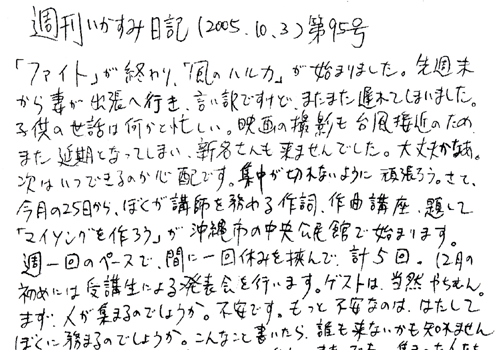 週刊いかすみ日記(2005.10.3)第95号
「ファイト」が終わり、「風のハルカ」が始まりました。先週末
から妻が出張へ行き、言い訳ですけど、またまた遅れてしまいました。
子供の世話は何かと忙しい。映画の撮影も台風接近のため
また延期となってしまい、新名さんも来ませんでした。大丈夫かなあ。
次はいつできるのか心配です。集中が切れないように頑張ろう。さて、
今月の25日から、ぼくが講師を務める作詞、作曲講座、題して
「マイソングを作ろう」が沖縄市の中央公民館で始まります。
週一回のペースで、間に一回休みを挟んで、計5回。12月の
初めには受講生による発表会を行います。ゲストは、当然やちむん。
まず、人が集まるのでしょうか。不安です。もっと不安なのは、はたして
ぼくに務まるのでしょうか。こんなこと書いたら、誰も来ないかも知れません